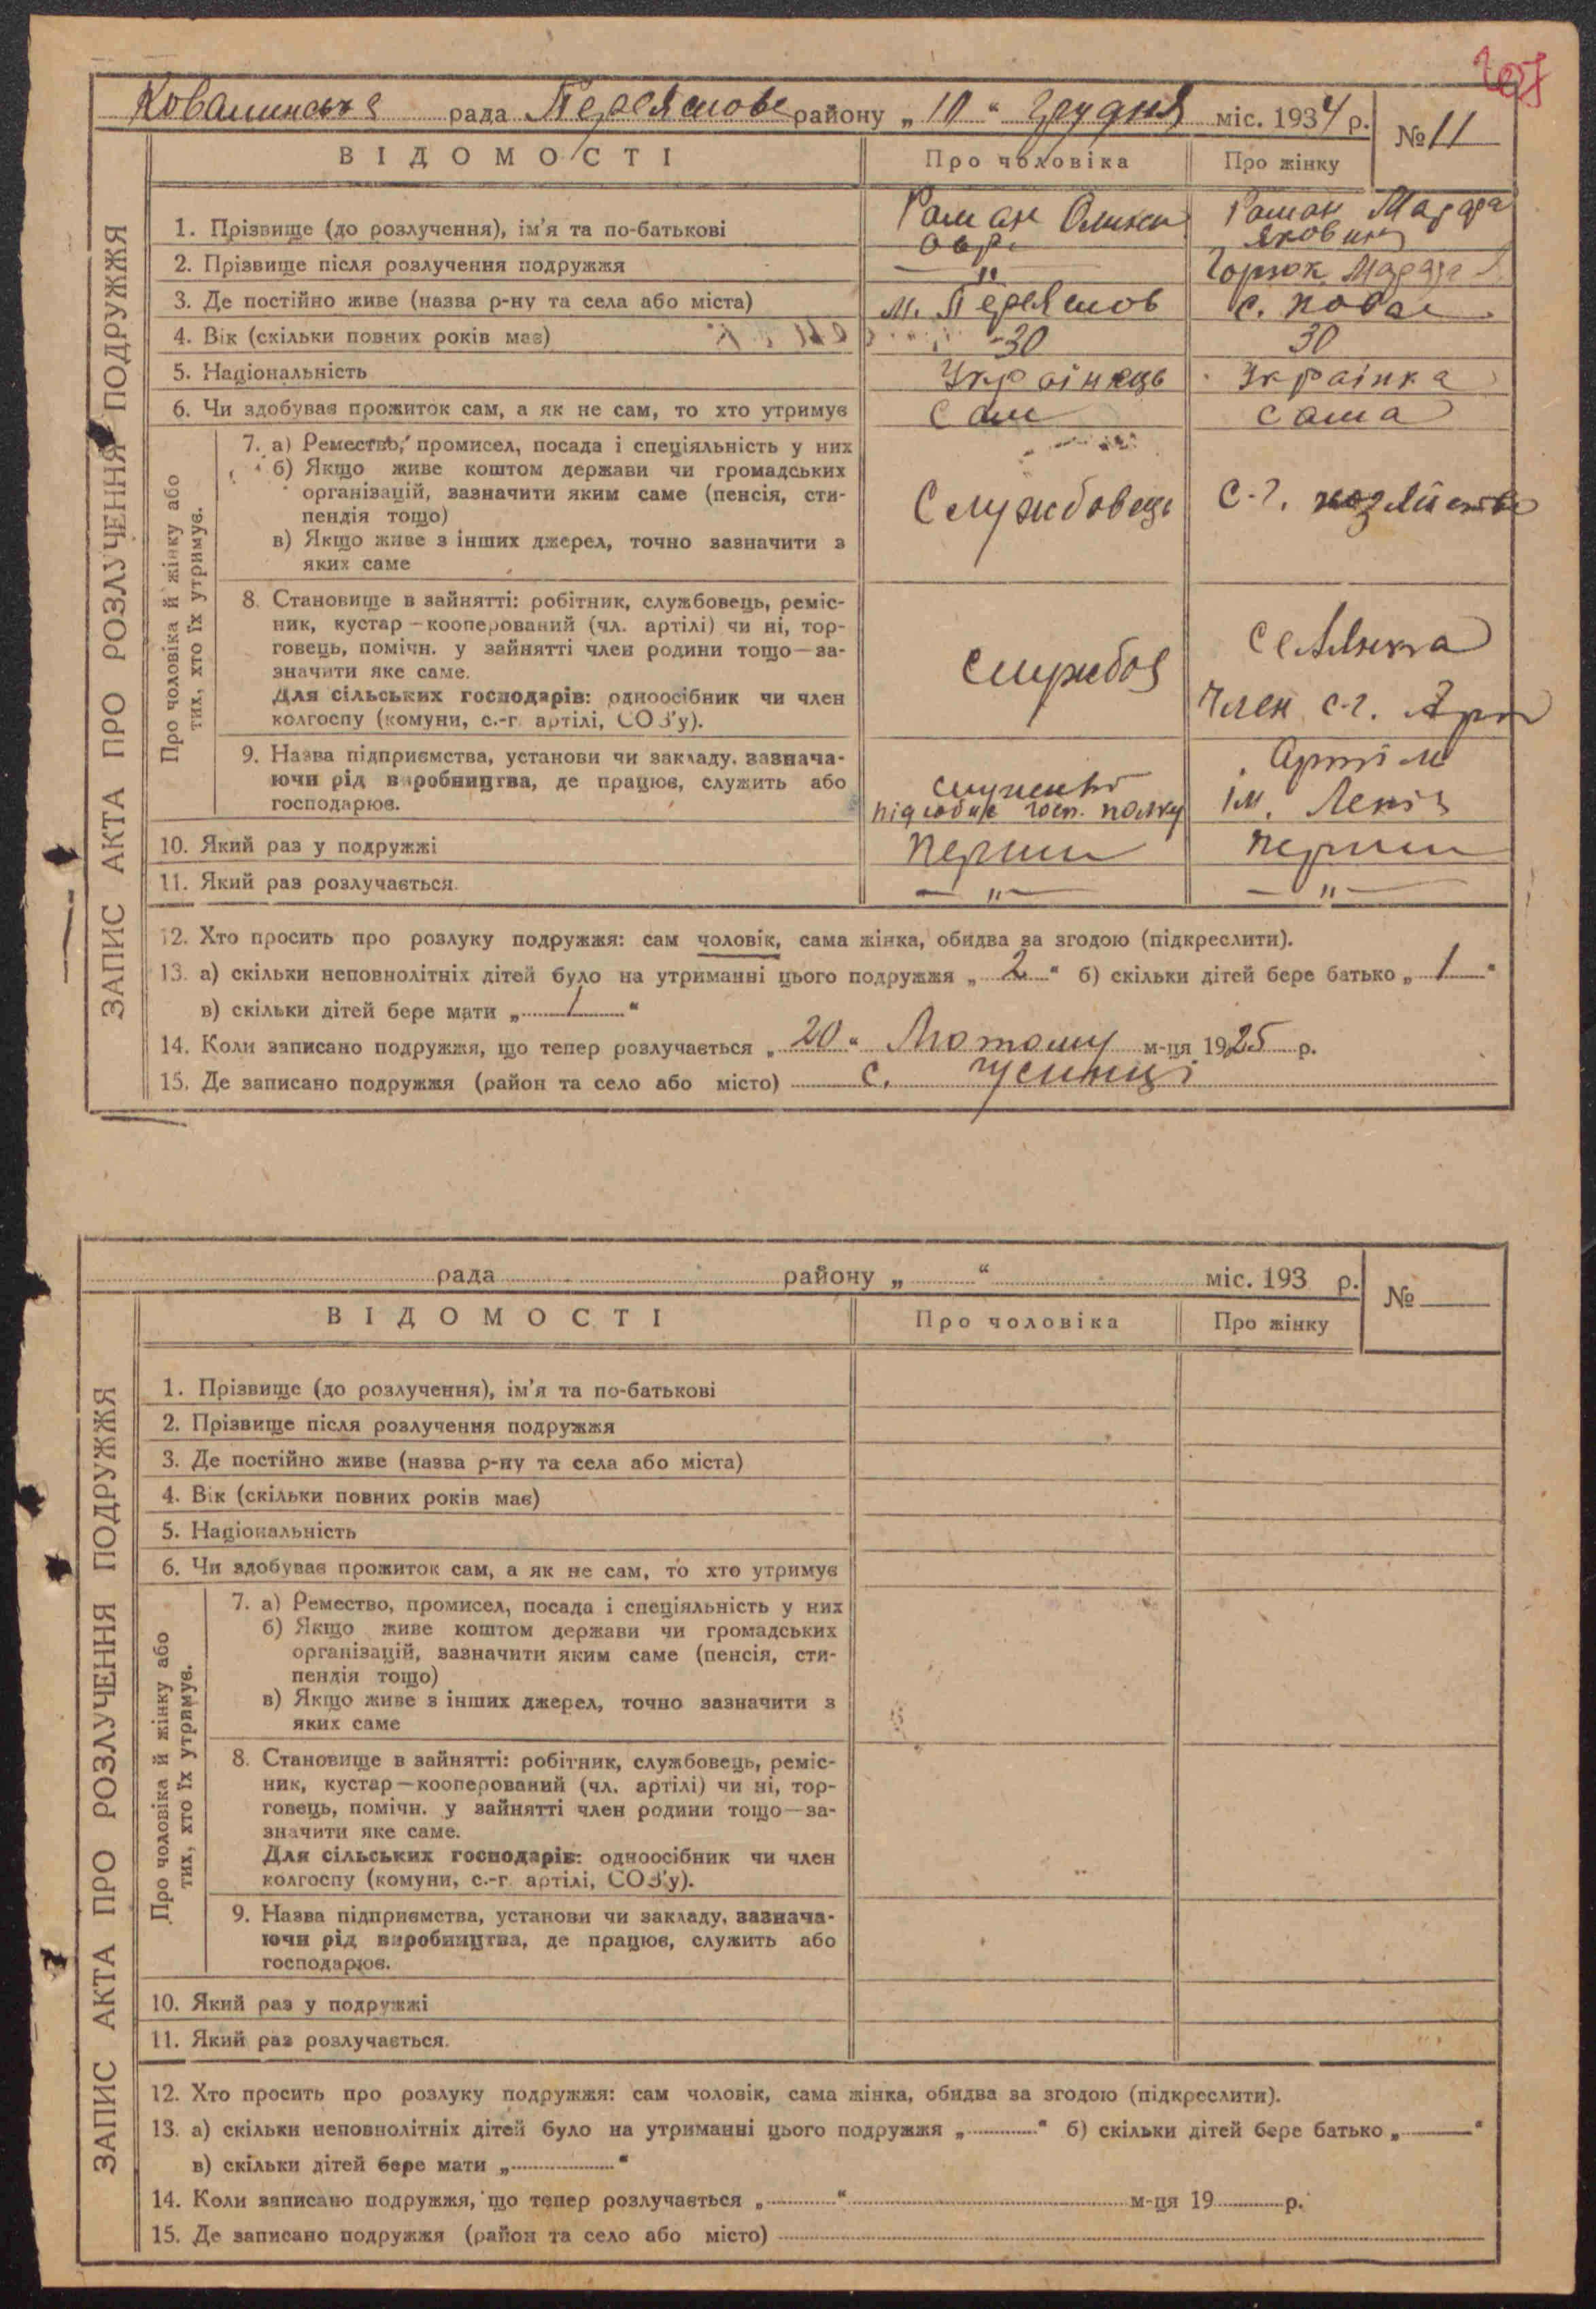 Ковалинська рада Переяслове району „10“ Грудня міс. 1934 р.
№ 11
ВІДОМОСТІ
Про чоловіка
Про жінку
1. Прізвище (до розлучення), ім'я та по-батькові
Роман
Роман
Яковин
2. Прізвище після розлучення подружжя
— „ —
3. Де постійно живе (назва р-ну та села або міста)
м. Переяслов
с. Ковал.
4. Вік (скільки повних років має)
30
30
5. Національність
Українець
Українка
6. Чи здобуває прожиток сам, а як не сам, то хто утримує
Сам
Сама
Про чоловіка й жінку або тих, хто їх утримує.
7. а) Ремество, промисел, посада і спеціяльність у них
б) Якщо живе коштом держави чи громадських
організацій, зазначити яким саме (пенсія, сти-
пендія тощо)
в) Якщо живе з інших джерел, точно зазначити з
яких саме
Службовець
с-г. хозяйство
8. Становище в зайнятті: робітник, службовець, реміс-
ник, кустар—кооперований (чл. артілі) чи ні, тор-
говець, помічн. у зайнятті член родини тощо—за-
значити яке саме.
Для сільських господарів: одноосібник чи член
колгоспу (комуни, с.-г. артілі, СОЗ'у).
службов
селянка
член с-г. Арт
9. Назва підприємства, установи чи закладу, зазнача-
ючи рід виробництва, де працює, служить або
господарює.
госп. полку
Артіль
ім. Леніа
10. Який раз у подружжі
Перший
Перший
11. Який раз розлучається.
— „ —
— „ —
12. Хто просить про розлуку подружжя: сам чоловік, сама жінка, обидва за згодою (підкреслити).
13. а) скільки неповнолітніх дітей було на утриманні цього подружжя „2“ б) скільки дітей бере батько „1“
в) скільки дітей бере мати „1“
14. Коли записано подружжя, що тепер розлучається „20“ Лютому м-ця 1925 р.
15. Де записано подружжя (район та село або місто) с. Чусинці
ЗАПИС АКТА ПРО РОЗЛУЧЕННЯ ПОДРУЖЖЯ
рада району „ “ міс. 193 р.
№
ВІДОМОСТІ
Про чоловіка
Про жінку
1. Прізвище (до розлучення), ім'я та по-батькові
2. Прізвище після розлучення подружжя
3. Де постійно живе (назва р-ну та села або міста)
4. Вік (скільки повних років має)
5. Національність
6. Чи здобуває прожиток сам, а як не сам, то хто утримує
Про чоловіка й жінку або тих, хто їх утримує.
7. а) Ремество, промисел, посада і спеціяльність у них
б) Якщо живе коштом держави чи громадських
організацій, зазначити яким саме (пенсія, сти-
пендія тощо)
в) Якщо живе з інших джерел, точно зазначити з
яких саме
8. Становище в зайнятті: робітник, службовець, реміс-
ник, кустар—кооперований (чл. артілі) чи ні, тор-
говець, помічн. у зайнятті член родини тощо—за-
значити яке саме.
Для сільських господарів: одноосібник чи член
колгоспу (комуни, с.-г. артілі, СОЗ'у).
9. Назва підприємства, установи чи закладу, зазнача-
ючи рід виробництва, де працює, служить або
господарює.
10. Який раз у подружжі
11. Який раз розлучається.
12. Хто просить про розлуку подружжя: сам чоловік, сама жінка, обидва за згодою (підкреслити).
13. а) скільки неповнолітніх дітей було на утриманні цього подружжя „ “ б) скільки дітей бере батько „ “
в) скільки дітей бере мати „ “
14. Коли записано подружжя, що тепер розлучається „ “ м-ця 19 р.
15. Де записано подружжя (район та село або місто)
ЗАПИС АКТА ПРО РОЗЛУЧЕННЯ ПОДРУЖЖЯ